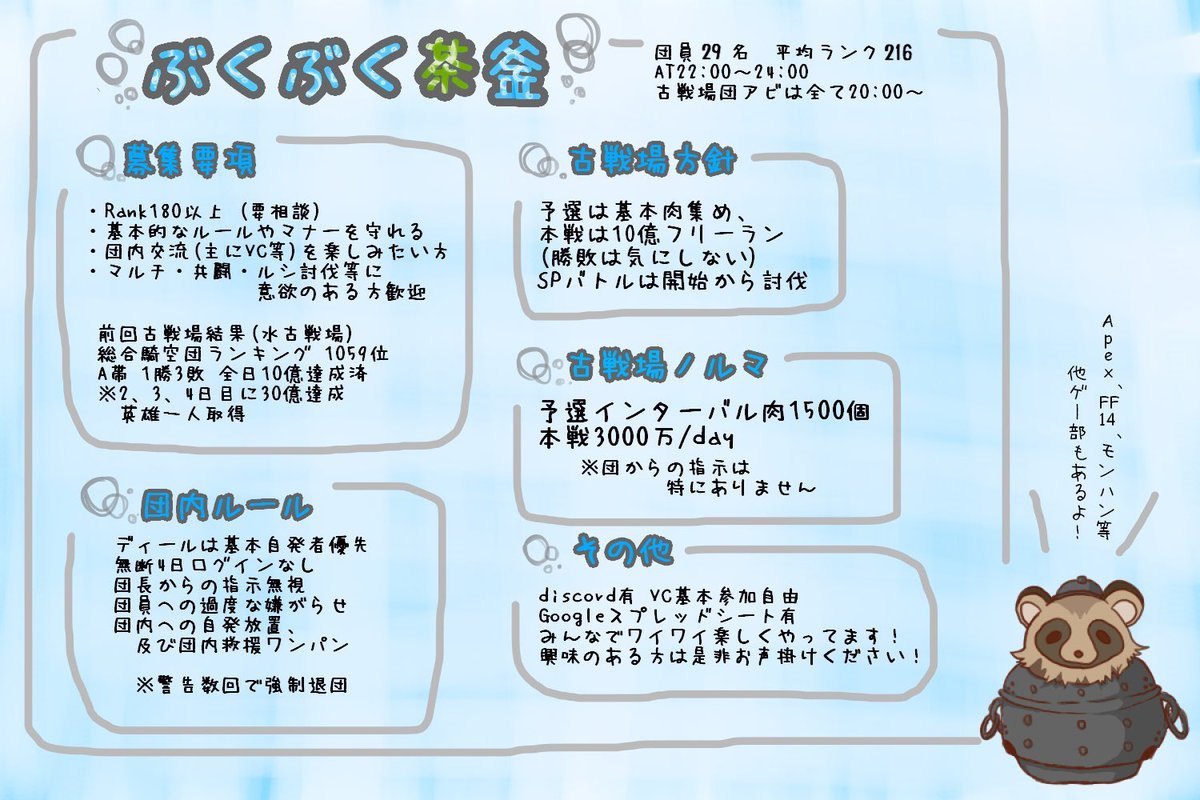 ぶくぶく茶釜
団員29名 平均ランク216
AT22:00～24:00
古戦場団アビは全て20:00～
募集要項
・Rank180以上 (要相談)
・基本的なルールやマナーを守れる
・団内交流(主にVC等)を楽しみたい方
・マルチ・共闘・ルシ討伐等に
意欲のある方歓迎
前回古戦場結果(水古戦場)
総合騎空団ランキング 1059位
A帯 1勝3敗 全日10億達成済
※2、3、4日目に30億達成
英雄一人取得
団内ルール
ディールは基本自発者優先
無断4日ログインなし
団長からの指示無視
団員への過度な嫌がらせ
団内への自発放置、
及び団内救援ワンパン
※警告数回で強制退団
古戦場方針
予選は基本肉集め、
本戦は10億フリーラン
(勝敗は気にしない)
SPバトルは開始から討伐
古戦場ノルマ
予選インターバル肉1500個
本戦3000万/day
※団からの指示は
特にありません
その他
discord有 VC基本参加自由
Googleスプレッドシート有
みんなでワイワイ楽しくやってます！
興味のある方は是非お声掛けください！
Apex、FF14、モンハン等
他ゲー部もあるよ！